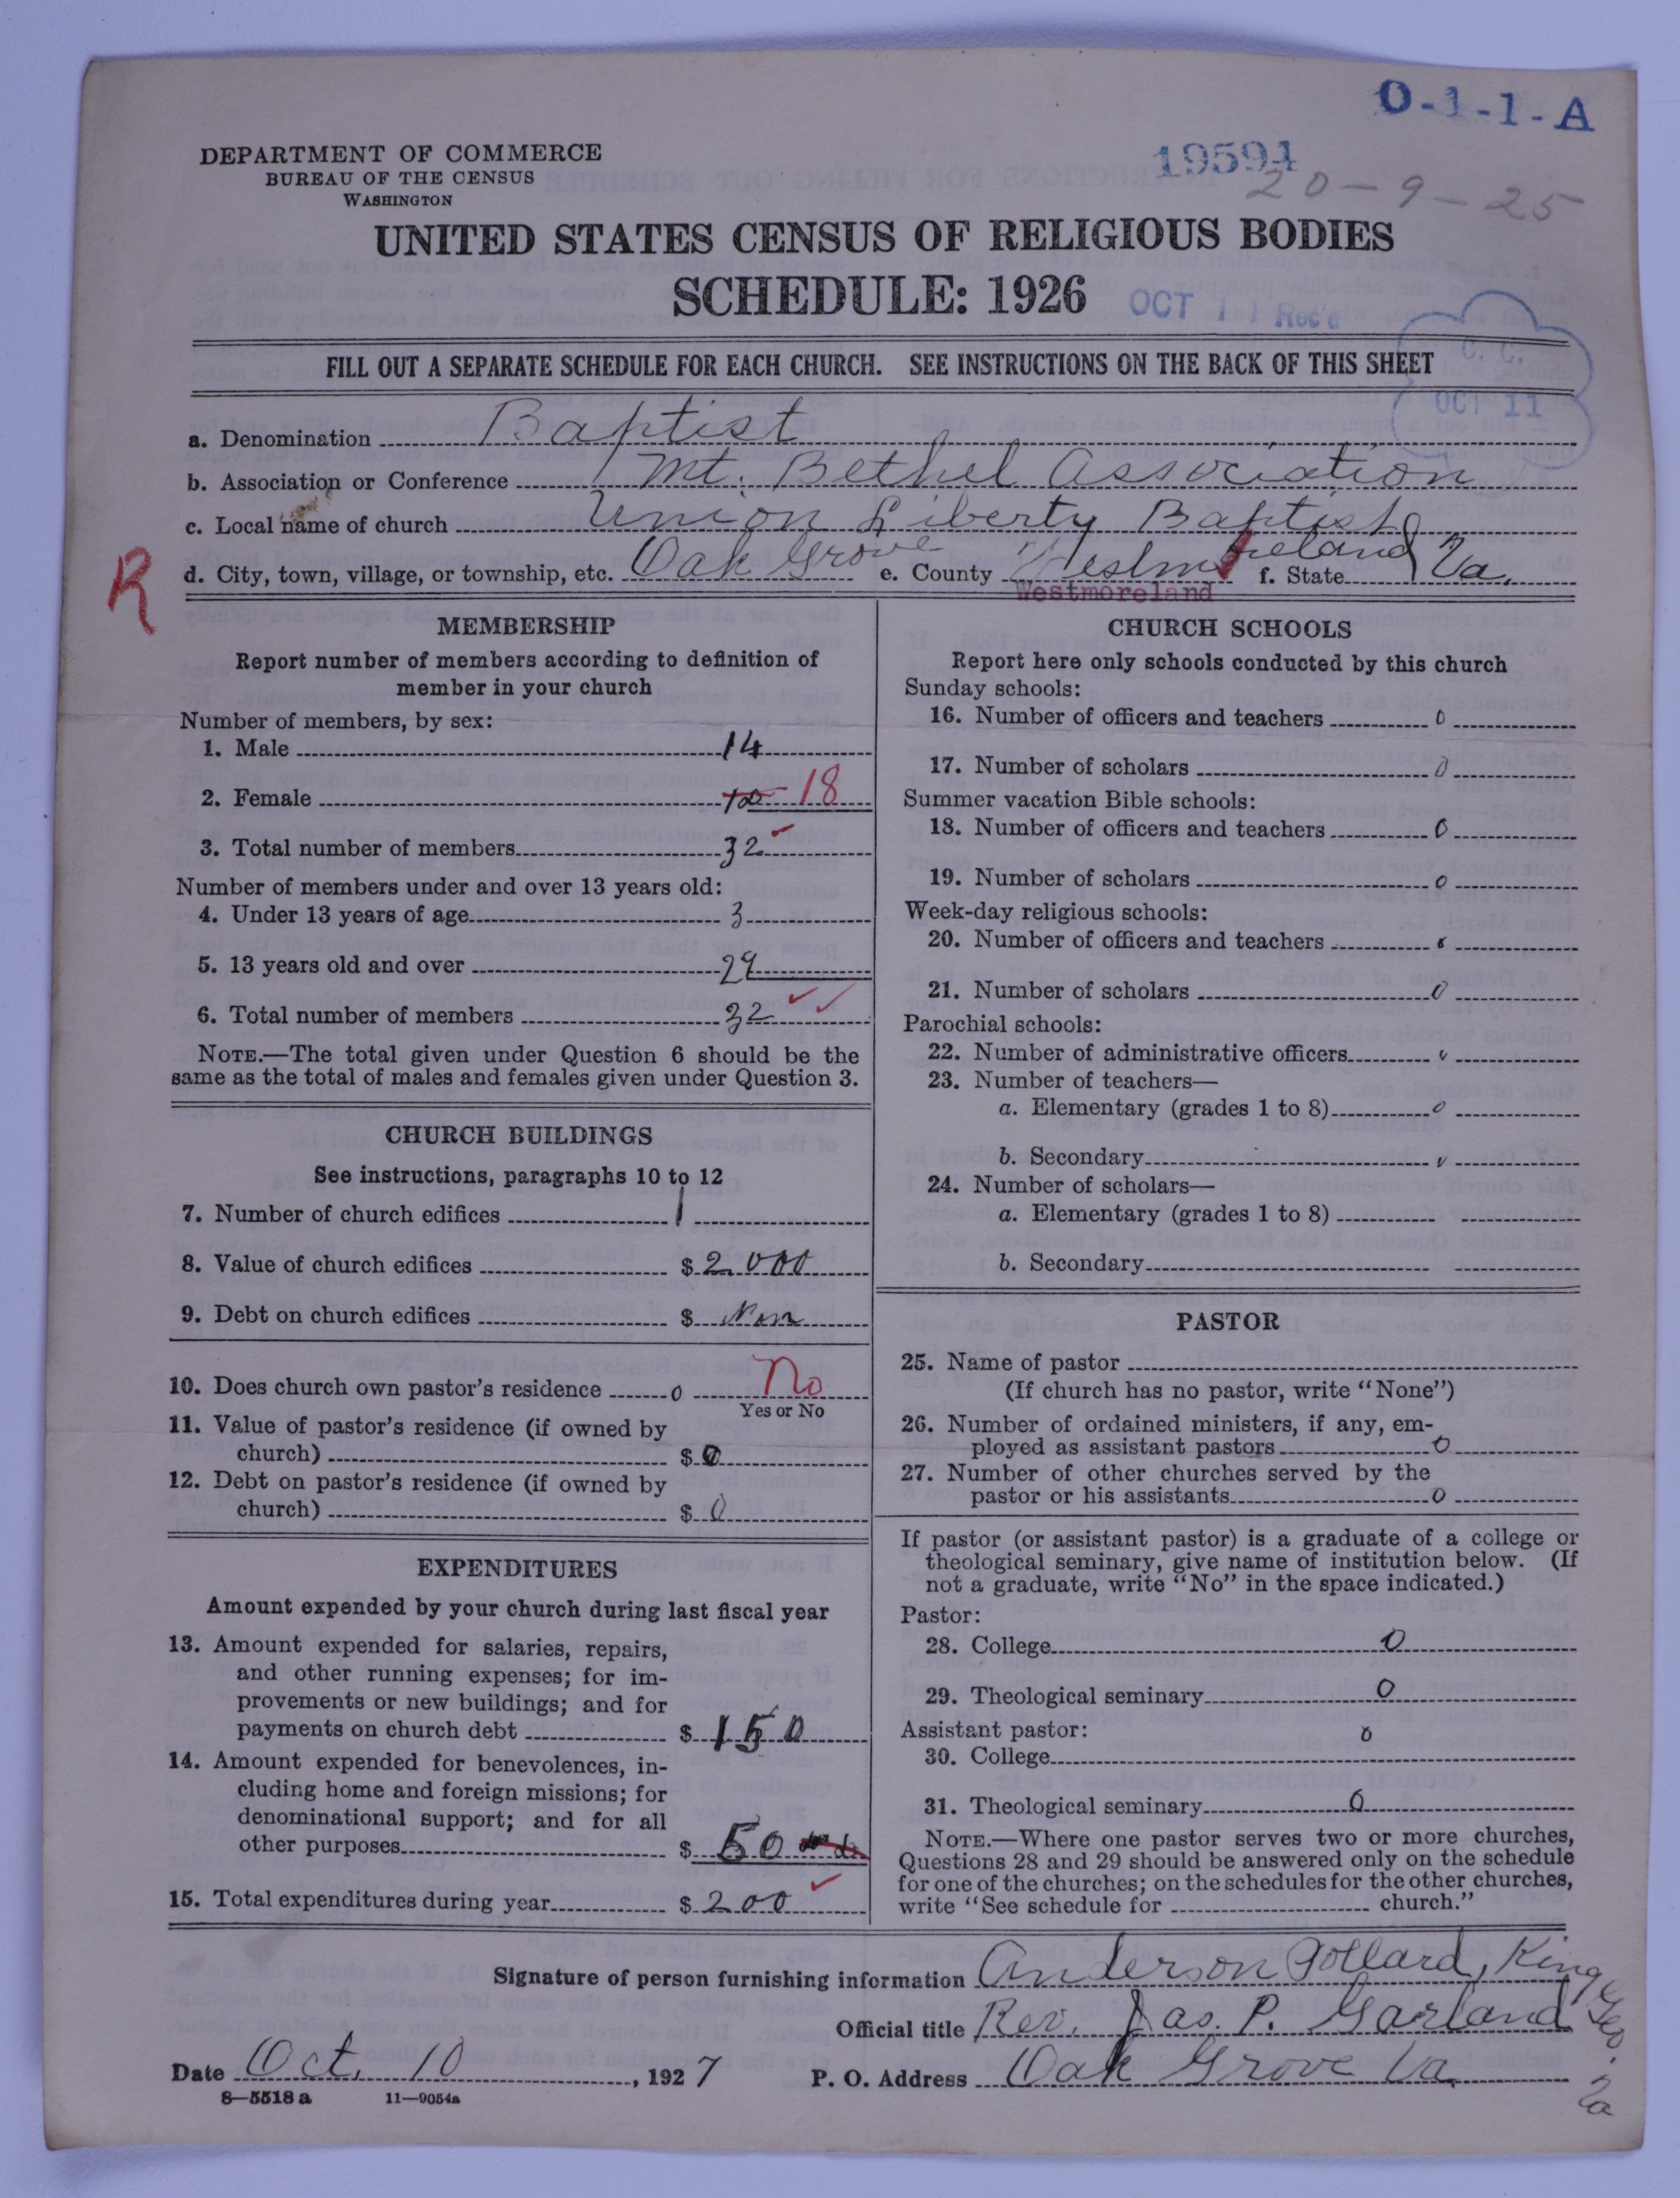 O-1-1-A
DEPARTMENT OF COMMERCE
BUREAU OF THE CENSUS
WASHINGTON
19594
20-9-25
UNITED STATES CENSUS OF RELIGIOUS BODIES
SCHEDULE: 1926
OCT 11 Rec'd
C. C.
OCT 11
FILL OUT A SEPARATE SCHEDULE FOR EACH CHURCH. SEE INSTRUCTIONS ON THE BACK OF THIS SHEET
a. Denomination Baptist
b. Association or Conference Mt. Bethel Association
c. Local name of church Union Liberty Baptist
d. City, town, village, or township, etc. Oak Grove e. County Westmoreland f. State Va.
Westmoreland
R
MEMBERSHIP
Report number of members according to definition of
member in your church
Number of members, by sex:
1. Male 14
2. Female 18
3. Total number of members 32
Number of members under and over 13 years old:
4. Under 13 years of age 3
5. 13 years old and over 29
6. Total number of members 32
NOTE.—The total given under Question 6 should be the
same as the total of males and females given under Question 3.
CHURCH BUILDINGS
See instructions, paragraphs 10 to 12
7. Number of church edifices 1
8. Value of church edifices $ 2000
9. Debt on church edifices $ Non
10. Does church own pastor's residence 0 No
Yes or No
11. Value of pastor's residence (if owned by
church) $ 0
12. Debt on pastor's residence (if owned by
church) $ 0
EXPENDITURES
Amount expended by your church during last fiscal year
13. Amount expended for salaries, repairs,
and other running expenses; for im-
provements or new buildings; and for
payments on church debt $ 150
14. Amount expended for benevolences, in-
cluding home and foreign missions; for
denominational support; and for all
other purposes $ 50
15. Total expenditures during year $ 200
CHURCH SCHOOLS
Report here only schools conducted by this church
Sunday schools:
16. Number of officers and teachers 0
17. Number of scholars 0
Summer vacation Bible schools:
18. Number of officers and teachers 0
19. Number of scholars 0
Week-day religious schools:
20. Number of officers and teachers
21. Number of scholars 0
Parochial schools:
22. Number of administrative officers
23. Number of teachers—
a. Elementary (grades 1 to 8) 0
b. Secondary
24. Number of scholars—
a. Elementary (grades 1 to 8)
b. Secondary
PASTOR
25. Name of pastor
(If church has no pastor, write "None")
26. Number of ordained ministers, if any, em-
ployed as assistant pastors 0
27. Number of other churches served by the
pastor or his assistants 0
If pastor (or assistant pastor) is a graduate of a college or
theological seminary, give name of institution below. (If
not a graduate, write "No" in the space indicated.)
Pastor:
28. College 0
29. Theological seminary 0
Assistant pastor:
30. College 0
31. Theological seminary 0
NOTE.—Where one pastor serves two or more churches,
Questions 28 and 29 should be answered only on the schedule
for one of the churches; on the schedules for the other churches,
write "See schedule for church."
Signature of person furnishing information Anderson Pollard, King Geo. Va
Official title Rev. Jas. P. Garland
Date Oct. 10, 1927 P. O. Address Oak Grove Va.
8—5518a 11—9054a